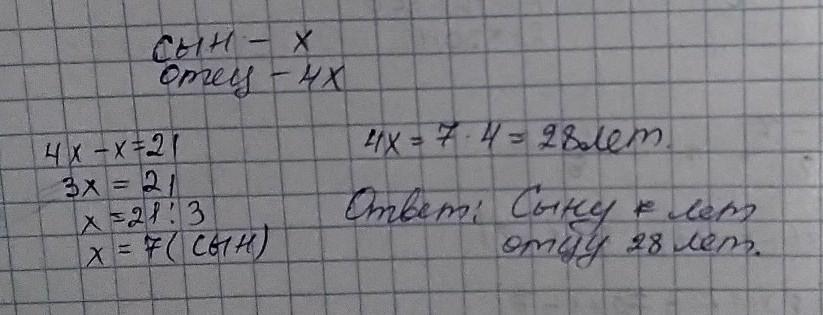 сын - x
отец - 4x
4x - x = 21
3x = 21
x = 21 : 3
x = 7 (сын)
4x = 7 · 4 = 28 лет.
Ответ: Сыну 7 лет
отцу 28 лет.